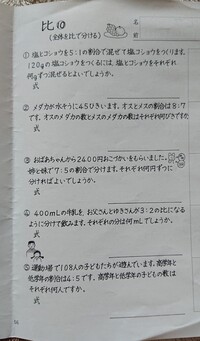 比⑩
(全体を比で分ける)
名
前
① 塩とコショウを5:1の割合で混ぜて塩コショウをつくります。
120gの塩コショウをつくるには、塩とコショウをそれぞれ
何gずつ混ぜるとよいでしょうか。
式
② メダカが水そうに45ひきいます。オスとメスの割合は8:7
です。オスのメダカの数とメスのメダカの数はそれぞれ何びきですか。
式
③ おばあちゃんから2400円おこづかいをもらいました。
姉と妹で7:5の割合で分けます。それぞれ何円ずつに
分ければよいでしょうか。
式
④ 400mLの牛乳を、お父さんとゆきさんが3:2の比になる
ように分けて飲みます。それぞれの分は何mLでしょうか。
式
⑤ 運動場で108人の子どもたちが遊んでいます。高学年と
他学年の割合は4:5です。高学年と他学年の子どもの数は
それぞれ何人ですか。
式